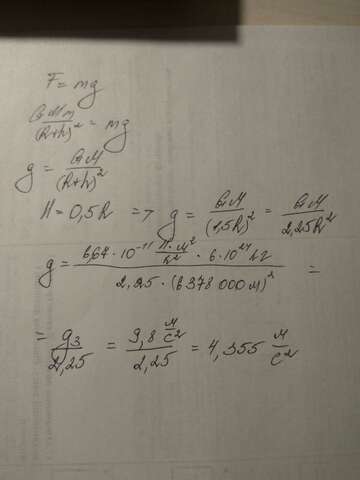 F = mg
GMm/(R+h)² = mg
g = GM/(R+h)²
H = 0,5R => g = GM/(1,5R)² = GM/2,25R²
g = 6,67 · 10⁻¹¹ Н·м²/кг² · 6·10²⁴ кг / 2,25 · (6 378 000 м)² =
= g₃/2,25 = 9,8 м/с² / 2,25 = 4,355 м/с²